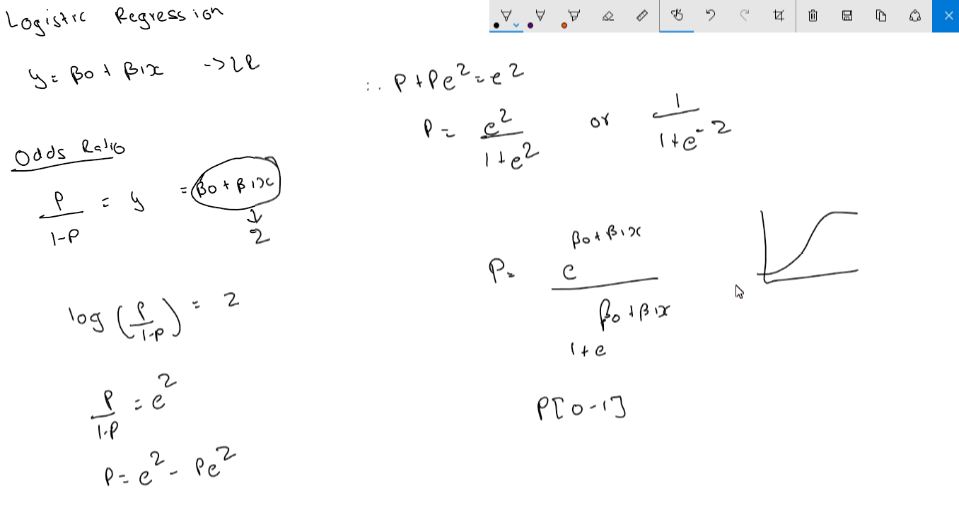 Logistic Regression
y = β0 + β1x -> LR
Odds Ratio
P / 1-P = y = β0 + β1x
↓
z
log (P / 1-P) = z
P / 1-P = e^z
P = e^z - Pe^z
∴ P + Pe^z = e^z
P = e^z / 1+e^z or 1 / 1+e^-z
P = e^β0+β1x / 1+e^β0+β1x
P[0-1]